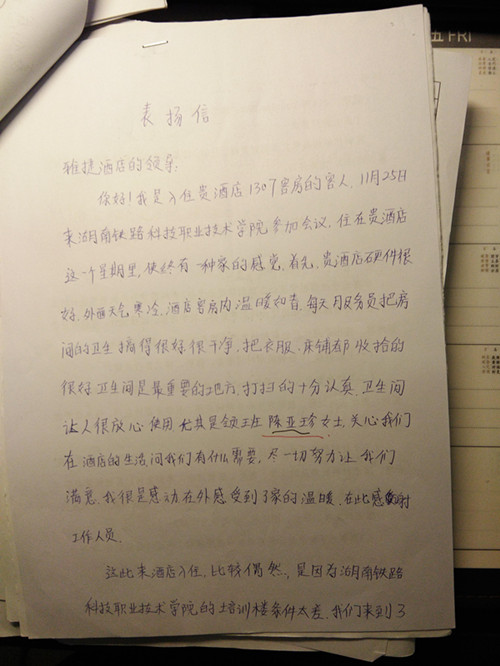 五 FRI
表扬信
雅捷酒店的领导.
你好!我是入住贵酒店1307客房的客人.11月25日
来湖南铁路科技职业技术学院参加会议,住在贵酒店
这一个星期里,使终有一种家的感觉,首先,贵酒店硬件很
好.外面天气寒冷,酒店客房内温暖如春.每天服务员把房
间的卫生搞得很好很干净.把衣服.床铺都收拾的
很好.卫生间是最重要的地方.打扫的十分认真.卫生间
让人很放心使用.尤其是领班陈亚珍女士,关心我们
在酒店的生活问我们有什么需要,尽一切努力让我们
满意.我很是感动在外感受到了家的温暖.在此感谢
工作人员.
这此来酒店入住,比较偶然,是因为湖南铁路
科技职业技术学院的培训楼条件太差.我们来到了